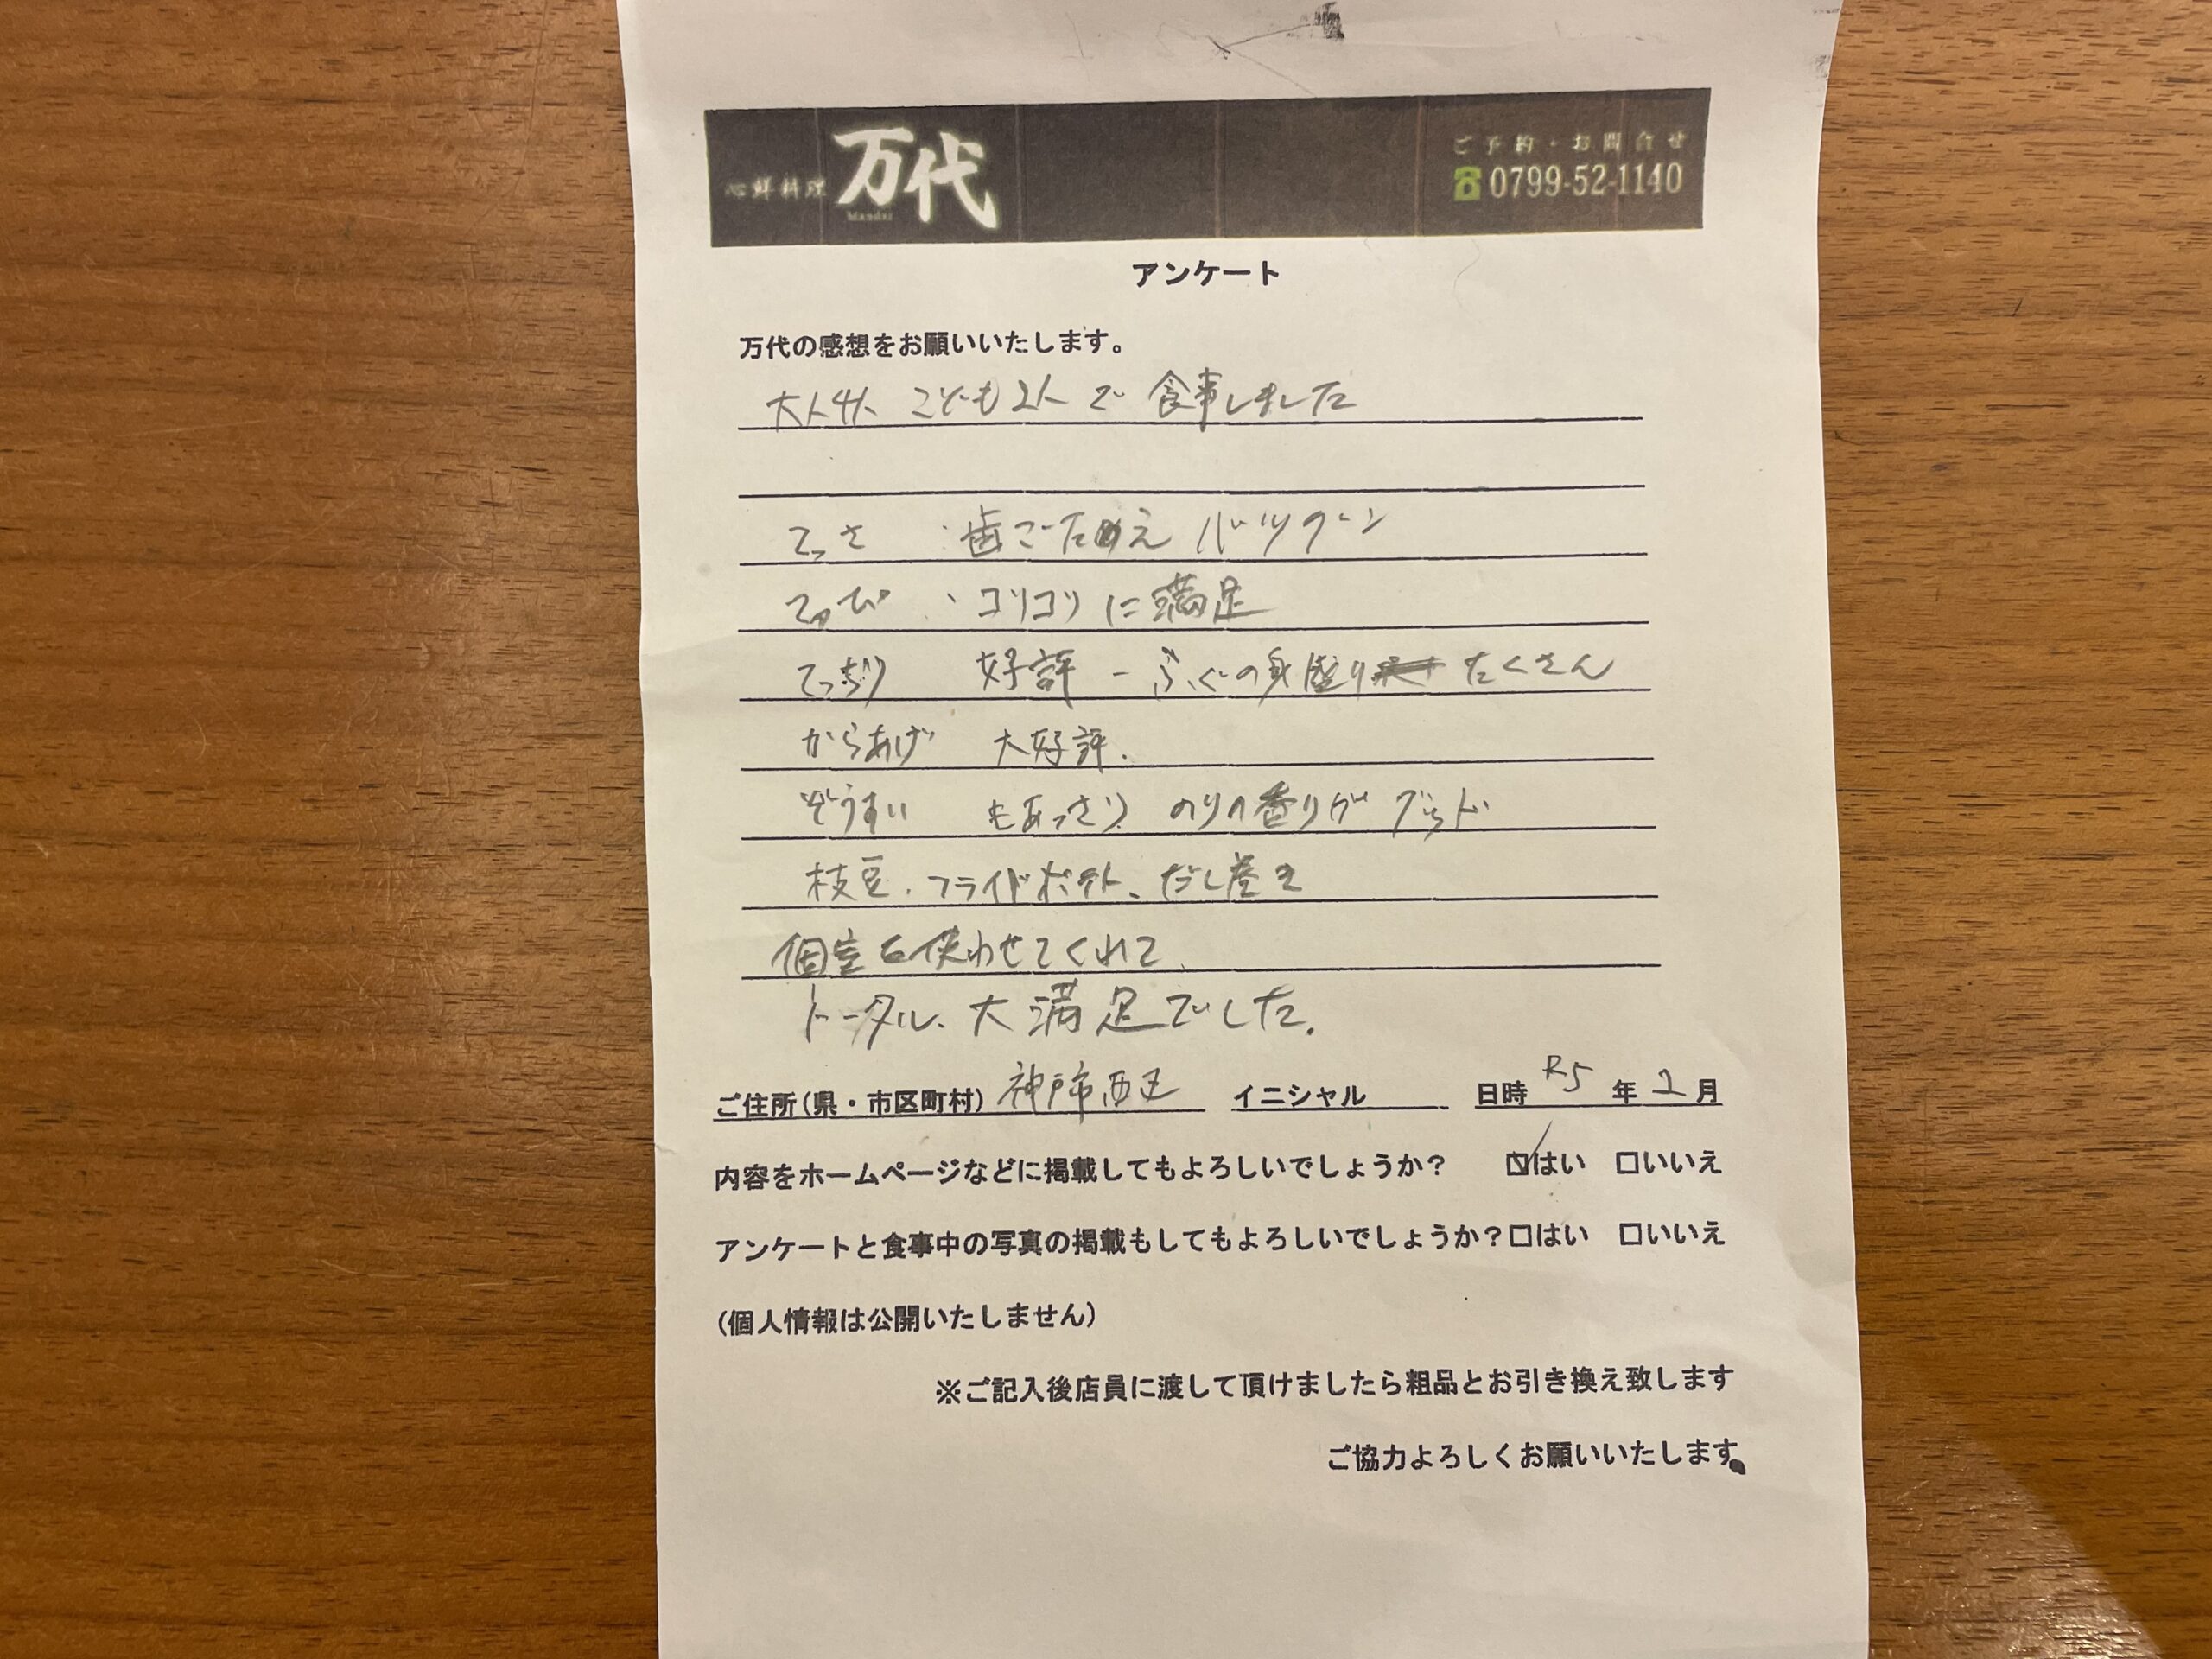 心鮮料理 万代 Mandai
ご予約・お問合せ
0799-52-1140
アンケート
万代の感想をお願いいたします。
大人4人 こども2人で 食事しました
てっさ : 歯ごたえ バツグン
てっぴ : コリコリに満足
てっちり 好評 - ふぐの身盛り たくさん
からあげ 大好評.
ぞうすい もあっさり のりの香りが グッド
枝豆、フライドポテト、だし巻き
個室を使わせてくれて、
トータル、大満足でした。
ご住所(県・市区町村) 神戸市西区 イニシャル 日時 R5 年 2 月
内容をホームページなどに掲載してもよろしいでしょうか? ☑はい □いいえ
アンケートと食事中の写真の掲載もしてもよろしいでしょうか?□はい □いいえ
(個人情報は公開いたしません)
※ご記入後店員に渡して頂けましたら粗品とお引き換え致します
ご協力よろしくお願いいたします。